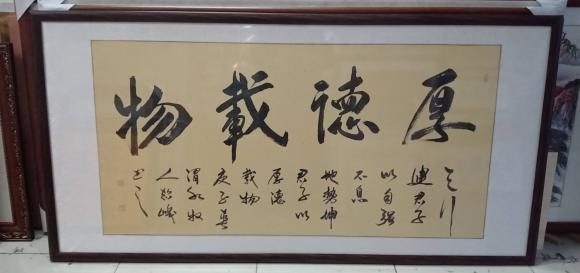 厚德載物
天行
健君子
以自强
不息
地势坤
君子以
厚德
载物
渭水牧
人
书之